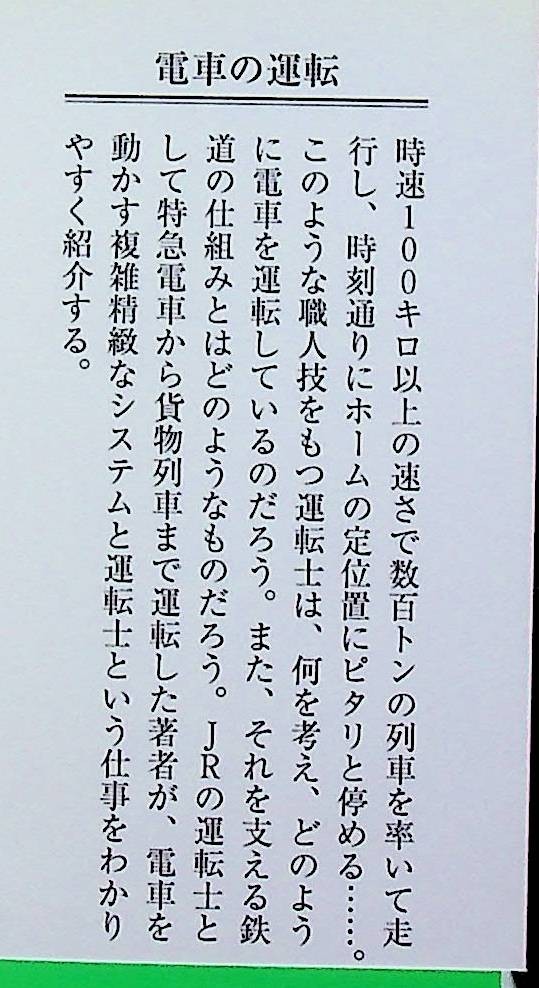 電車の運転
時速100キロ以上の速さで数百トンの列車を率いて走
行し、時刻通りにホームの定位置にピタリと停める……。
このような職人技をもつ運転士は、何を考え、どのよう
に電車を運転しているのだろう。また、それを支える鉄
道の仕組みとはどのようなものだろう。JRの運転士と
して特急電車から貨物列車まで運転した著者が、電車を
動かす複雑精緻なシステムと運転士という仕事をわかり
やすく紹介する。